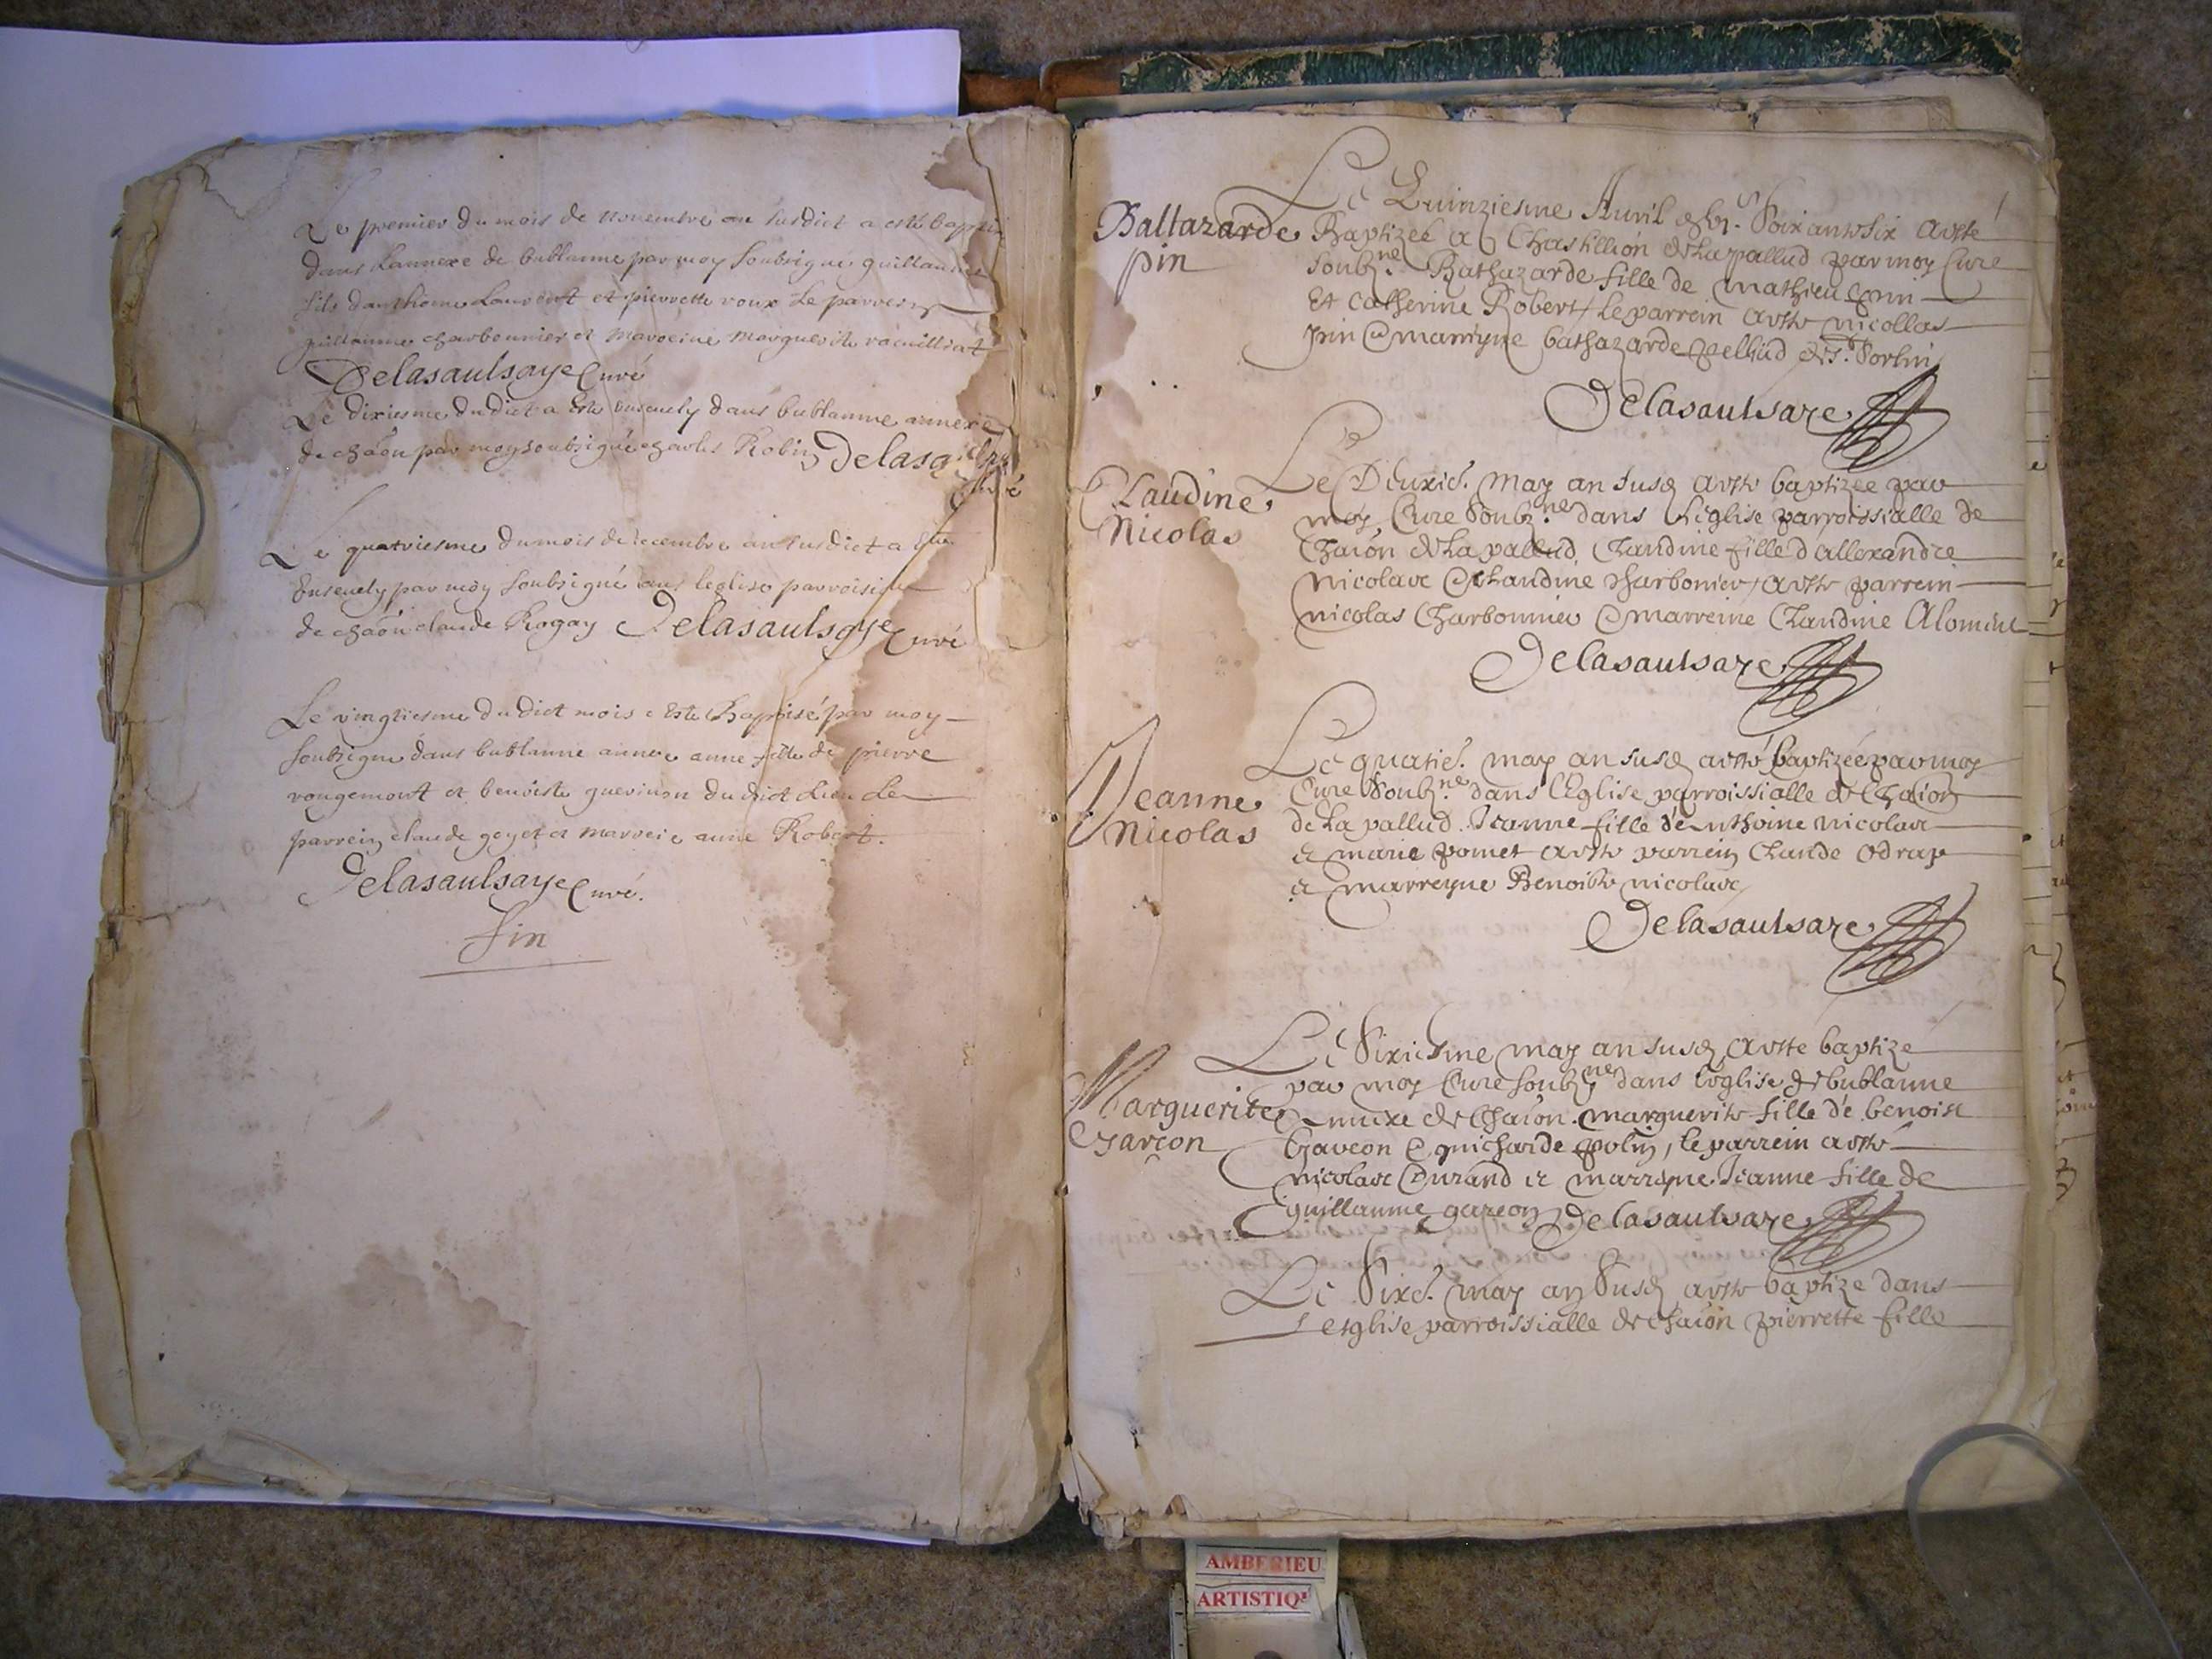 Le premier du mois de novembre an susdict a esté baptis
dans Lannexe de bublanne par moy soubsigne guillaume
fils danthoine Laurent et pierrette roux Le parrein
guillaume charbonnier et maroeine marguerite
Delasaulsaye Curé
Le dixiesme dudict a Esté Ensevely dans bublanne annexe
de chaôn par moy soubsigné charles Robin Delasa
Curé
Le quatriesme du mois de decembre an susdict a Esté
Ensevely par moy soubsigné dans leglise parroisi
de chaôn claude Rogay Delasaulsaye Curé
Le vingtiesme du dict mois a Esté Baptisé par moy
soubsigne dans bublanne annexe anne fille de pierre
rougemont et benoiste guerinon du dict Lieu Le
parrein claude goyet et marreine anne Robert.
Delasaulsaye Curé.
fin
Baltazarde
pin
Le Quinziesme Avril Soixante Six a este
Baptizée a Chastillion de La pallud par moy Cure
soubz.ne Bathazarde fille de mathieu pin
Et Catherine Robert / Le parrein a este nicollas
pin & marreyne bathazarde pellud de St. Sorlin
Delasaulsaye
Claudine
Nicolas
Le Deuxies. may an susd a este baptizee par
moy Cure Soubz.ne dans L'église parroissialle de
Chaiôn de La pallud Claudine fille d'allexandre
Nicolas & Claudine Charbonier / a este parrein
nicolas Charbonnier & marreine Claudine
Delasaulsaye
Jeanne
Nicolas
Le quaties. may an susd a esté baptizée par moy
Cure Soubz.ne dans l'Eglise parroissialle de Chaion
de La pallud Jeanne fille d'Enthoine nicolas
& marie pomet a este parrein Claude odrap
& marreyne Benoiste nicolas
Delasaulsaye
Marguerite
Garçon
Le Sixiesme may an susd a este baptize
par moy Cure soubz.ne dans leglise de bublanne
Annexe de Chaion. marguerite fille de benoist
Garcon & guicharde polin, le parrein a esté
nicolas Durand & marreyne Jeanne fille de
guillaume garcon Delasaulsaye
Le Sixe. may an Susd a este baptize dans
L'esglise parroissialle de Chaion pierrette fille
AMBERIEU
ARTISTIQ